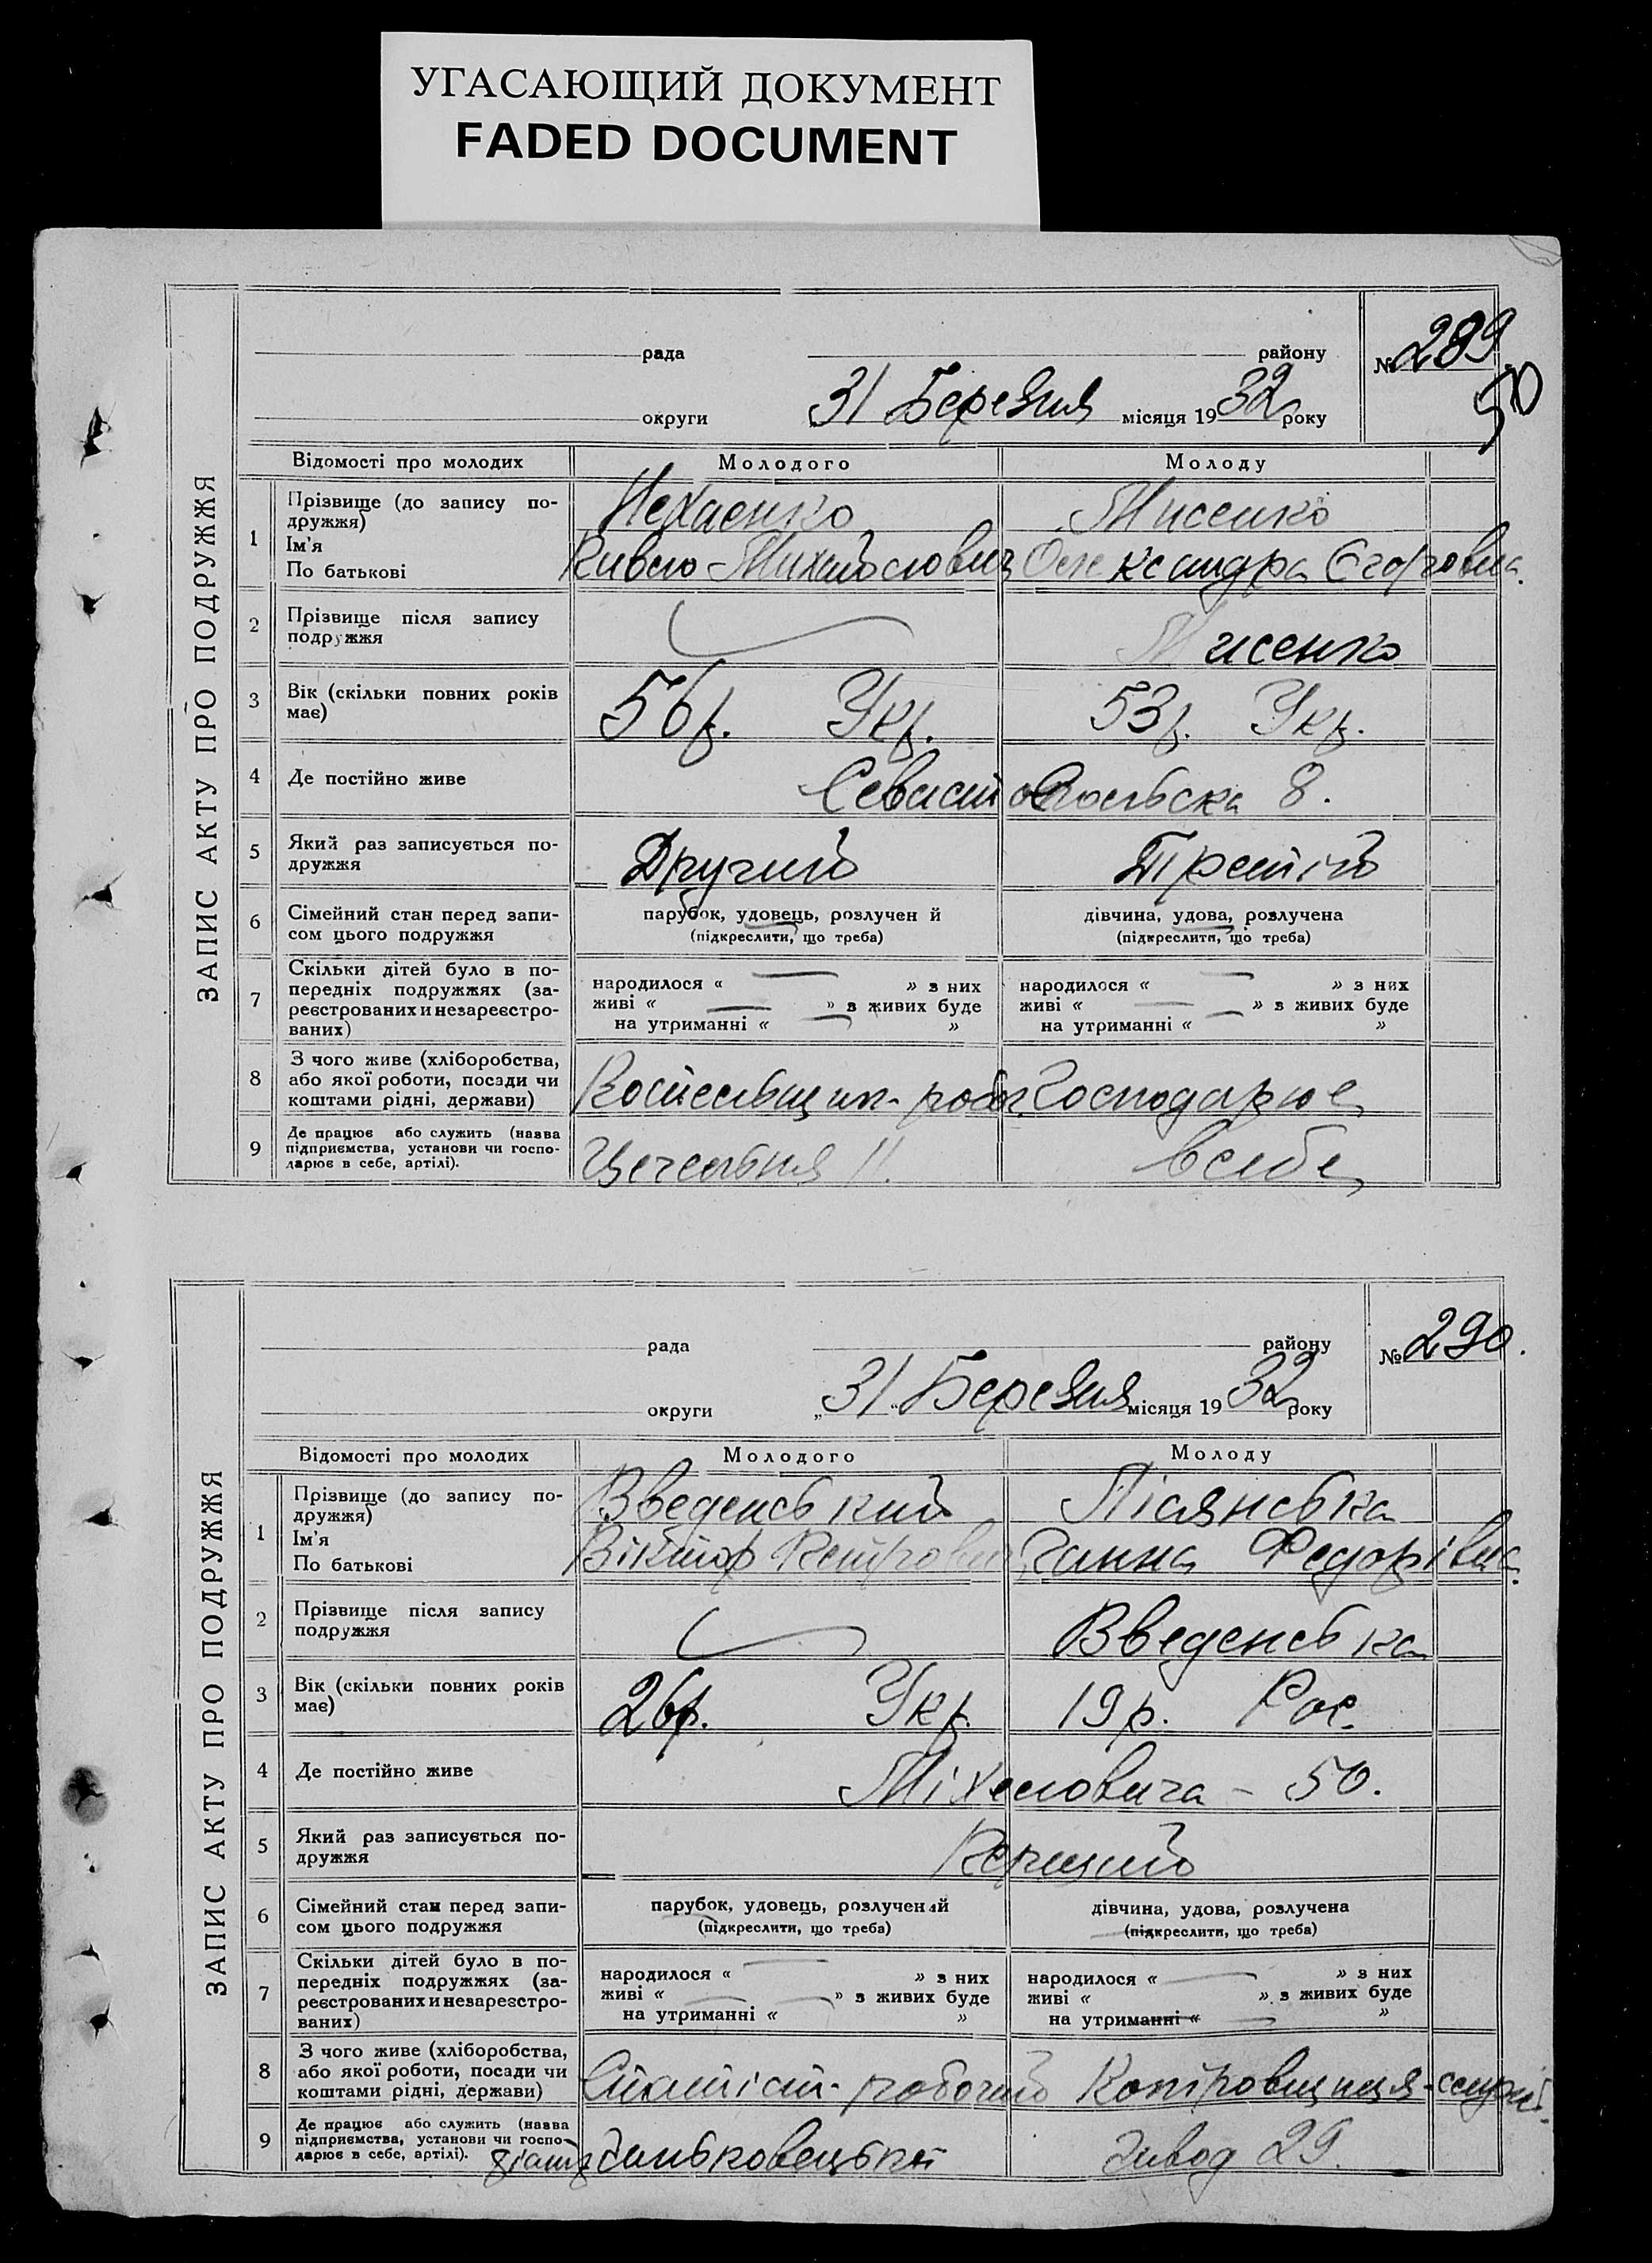 УГАСАЮЩИЙ ДОКУМЕНТ
FADED DOCUMENT
ЗАПИС АКТУ ПРО ПОДРУЖЖЯ
рада району № 289
50
округи 31 Березня місяця 1932 року
Відомості про молодих Молодого Молоду
1 Прізвище (до запису по-
дружжя) Нехаєнко Мисенко
Ім'я
По батькові Павло Михайлович Олександра Єгоровна.
2 Прізвище після запису
подружжя Мисенко
3 Вік (скільки повних років
має) 56 р. Укр. 53 р. Укр.
4 Де постійно живе Севастопольська 8.
5 Який раз записується по-
дружжя Другий Третій
6 Сімейний стан перед запи-
сом цього подружжя
парубок, удовець, розлучен й дівчина, удова, розлучена
(підкреслити, що треба) (підкреслити, що треба)
7 Скільки дітей було в по-
передніх подружжях (за-
реєстрованих и незареєстро-
ваних)
народилося « — » з них народилося « — » з них
живі « — » з живих буде живі « — » з живих буде
на утриманні « — » на утриманні « — »
8 З чого живе (хліборобства,
або якої роботи, посади чи
коштами рідні, держави)
робоч. Господарює
9 Де працює або служить (назва
підприємства, установи чи госпо-
дарює в себе, артілі).
11. в себе
ЗАПИС АКТУ ПРО ПОДРУЖЖЯ
рада району № 290.
округи „31“ Березня місяця 1932 року
Відомості про молодих Молодого Молоду
1 Прізвище (до запису по-
дружжя) Введенський Пісянська
Ім'я
По батькові Віктор Петрович Ганна Федорівна.
2 Прізвище після запису
подружжя Введенська
3 Вік (скільки повних років
має) 26 р. Укр. 19 р. Рос.
4 Де постійно живе Міхеловича – 50.
5 Який раз записується по-
дружжя Перший
6 Сімейний стан перед запи-
сом цього подружжя
парубок, удовець, розлучений дівчина, удова, розлучена
(підкреслити, що треба) (підкреслити, що треба)
7 Скільки дітей було в по-
передніх подружжях (за-
реєстрованих и незареєстро-
ваних)
народилося « — » з них народилося « — » з них
живі « — » з живих буде живі « — » з живих буде
на утриманні « — » на утриманні « — »
8 З чого живе (хліборобства,
або якої роботи, посади чи
коштами рідні, держави)
Статіст - робочий
9 Де працює або служить (назва
підприємства, установи чи госпо-
дарює в себе, артілі).
Заньковецької Завод 29.